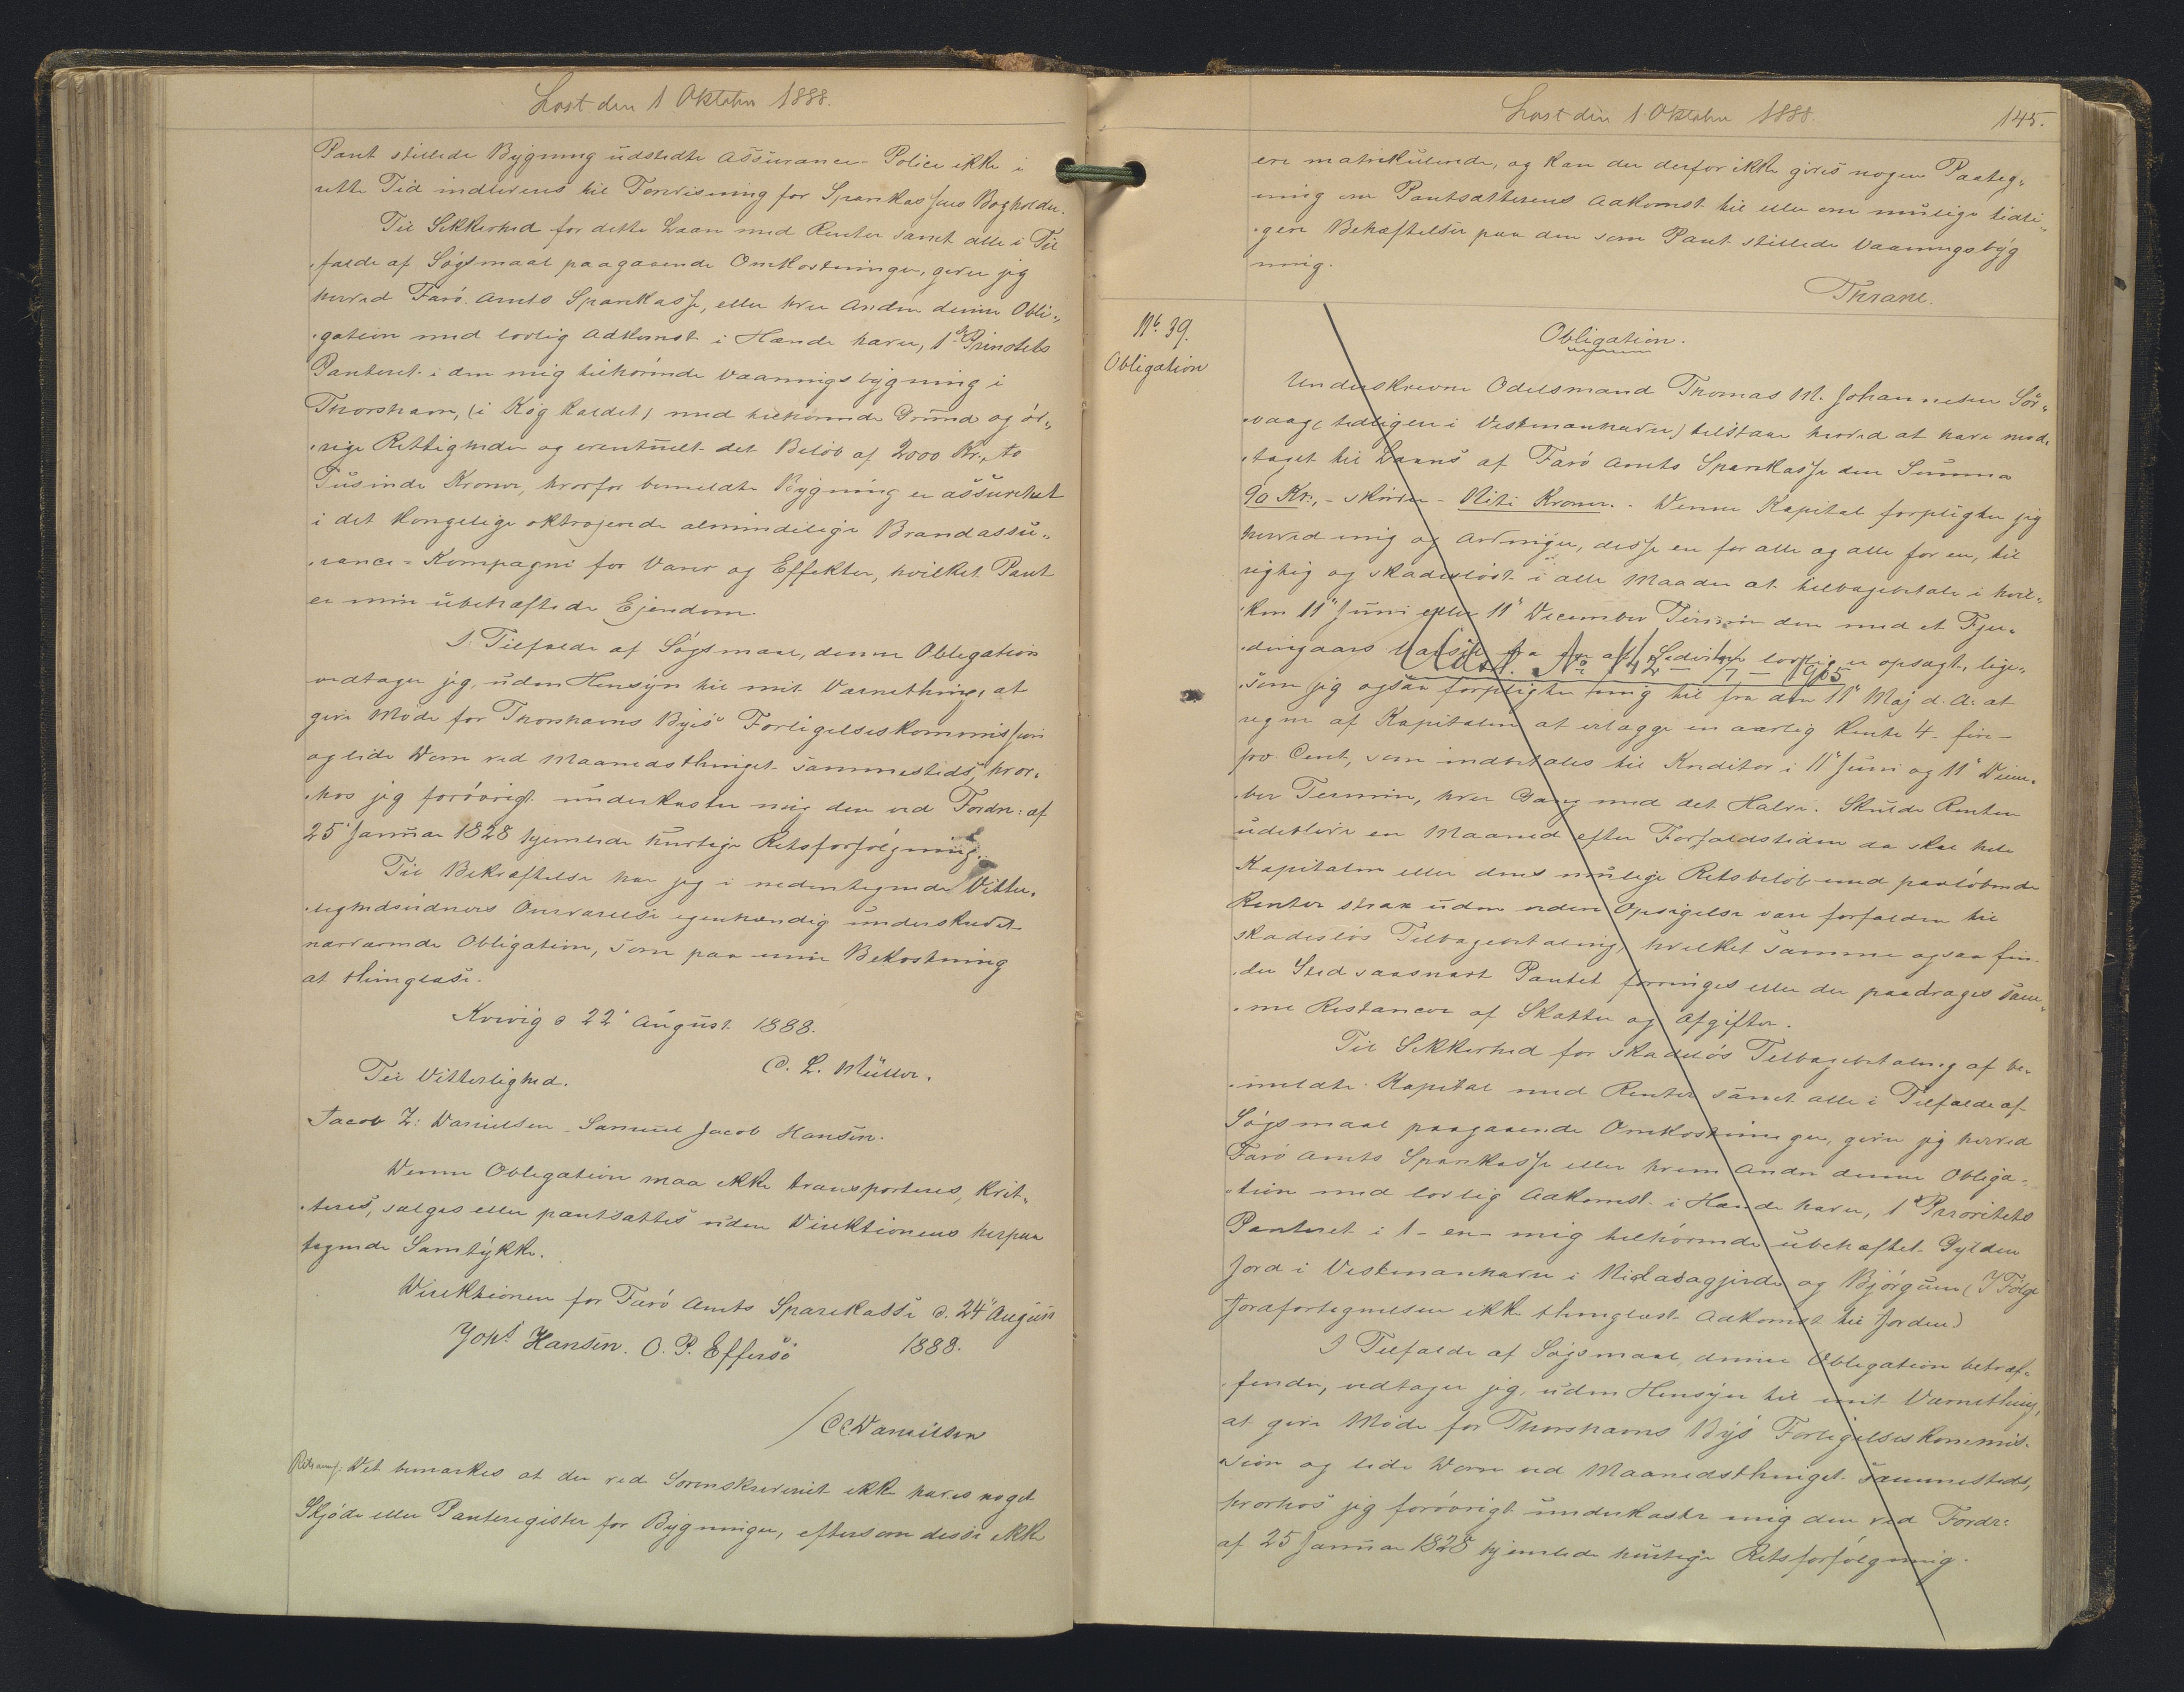 Læst den 1 Oktober 1888.
Pant stillede Bygning udstedte Assurance-Police ikke i
rette Tid indleveres til Forevisning for Sparekassens Bogholder.
Til Sikkerhed for dette Laan med Renter samt alle i Til
fælde af Søgsmaal paagaaende Omkostninger, giver jeg
herved Færø Amts Sparekasse, eller hver Anden denne Obli-
gation med lovlig Adkomst i Hænde haver, 1ste
Panteret i den mig tilhørende Vaaningsbygning i
Thorshavn, (i Køg kaldet) med tilhørende Grund og øv-
rige Rettigheder og eventuelt det Beløb af 2000 Kr., to
Tusinde Kroner, hvorfor bemeldte Bygning er assureret
i det Kongelige oktrojerede almindelige Brandassu-
rance-Kompagni for Varer og Effekter, hvilket Pant
er min ubehæftede Ejendom.
I Tilfælde af Søgsmaal, denne Obligation
vedtager jeg, uden Hensyn til mit Værnething, at
give Møde for Thorshavns Byes Forligelseskommission
og lide Dom ved Maanedsthinget sammesteds, hvor-
hos jeg forøvrigt underkaster mig den ved Fordn: af
25' Januar 1828 hjemlede hurtige Retsforfølgning.
Til Bekræftelse har jeg i nedentegnede Vitter-
lighedsvidners Overværelse egenhændig underskrevet
nærværende Obligation, som paa min Bekostning
at thinglæse.
Kvivig d 22' August 1888.
C. L. Müller.
Til Vitterlighed.
Jacob Z: Danielsen Samuel Jacob Hansen.
Denne Obligation maa ikke transporteres, kvit-
teres, sælges eller pantsættes uden Direktionens herpaa
tegnede Samtykke.
Direktionen for Færø Amts Sparekasse d. 24' August
1888.
Johs Hansen. O. P. Effersø
/ Danielsen
Retsanm: Det bemærkes at der ved Sorenskriveriet ikke haves noget
Skjøde eller Panteregister for Bygninger, eftersom disse ikke
Læst den 1. Oktober 1888.
145.
ere matrikulerede, og kan der derfor ikke gives nogen Paateg-
ning om Pantsætterens Adkomst til eller om mulige tidli-
gere Behæftelser paa den som Pant stillede Vaaningsbyg
ning.
Thrane.
No. 39.
Obligation
Obligation.
Underskrevne Odelsmand Thomas M. Johannesen Sør-
vaag (tidligere i Vestmanhavn) tilstaar herved at have mod-
taget til Laans af Færø Amts Sparekasse den Summa
90 Kr., - skriver - Niti Kroner. - Denne Kapital forpligter jeg
herved mig og Arvinger, disse en for alle og alle for en, til
rigtig og skadesløst i alle Maader at tilbagebetale i hvil-
ken 11' Juni eller 11' December Termin den med et Fjer-
dingaars Varsel fra en af Siderne lovlig er opsagt, lige-
Udsl. No 142 - /7 - 1905
som jeg ogsaa forpligter mig til fra den 11' Maj d. A. at
regne af Kapitalen at erlægge en aarlig Rente 4 - fire -
pro Cent, som indbetales til Kreditor i 11' Juni og 11' Decem-
ber Termin, hver Gang med det Halve. Skulde Renten
udeblive en Maaned efter Forfaldstiden da skal hele
Kapitalen eller dens mulige Restbeløb med paaløbende
Renter strax uden videre Opsigelse være forfalden til
skadesløs Tilbagebetaling, hvilket samme ogsaa fin-
der Sted saasnart Pantet forringes eller der paadrages sam-
me Restancer af Skatter og Afgifter.
Til Sikkerhed for skadesløs Tilbagebetaling af be-
meldte Kapital med Renter samt alle i Tilfælde af
Søgsmaal paagaaende Omkostninger, giver jeg herved
Færø Amts Sparekasse eller hvem Anden denne Obliga-
tion med lovlig Adkomst i Hænde haver, 1' Prioritets
Panteret i 1 - en - mig tilhørende ubehæftet Gylden
Jord i Vestmanhavn i og Bjørgum (I Følge
Jorafortegnelsen ikke thinglæst Adkomst til Jorden)
I Tilfælde af Søgsmaal denne Obligation betræf-
fende, vedtager jeg, uden Hensyn til mit Værnething,
at give Møde for Thorshavns Bys Forligelseskommis-
sion og lide Dom ved Maanedsthinget sammesteds,
hvorhos jeg forøvrigt underkaster mig den ved Fordr:
af 25 Januar 1828 hjemlede hurtige Retsforfølgning.